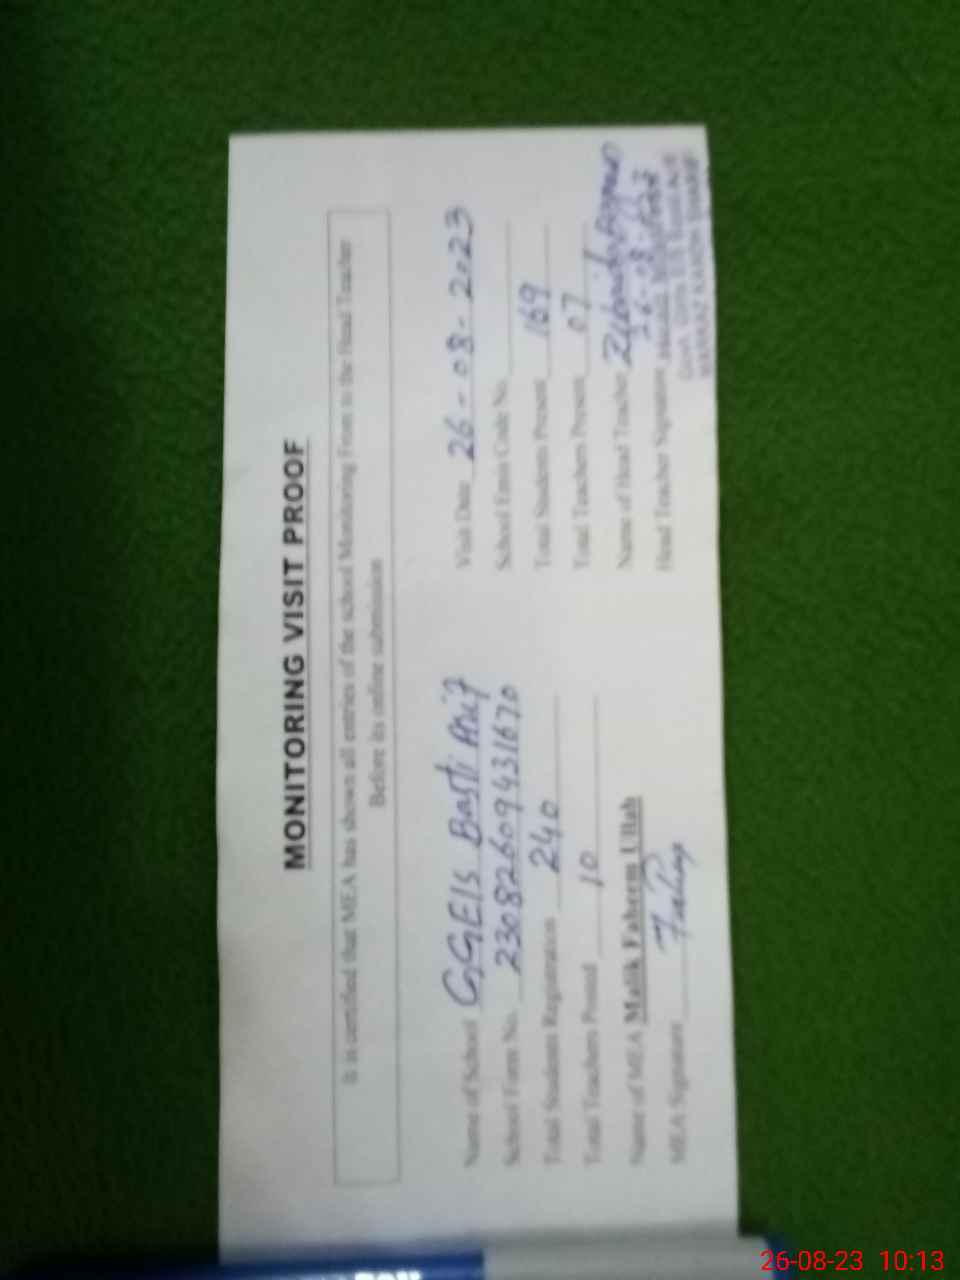 MONITORING VISIT PROOF
It is certified that MEA has shown all entries of the school Monitoring From to the Head Teacher
Before its online submission
Name of School GGElS Basti Arif
Visit Date 26-08-2023
School Form No. 23082609431670
School Emis Code No.
Total Students Registration 240
Total Students Present 169
Total Teachers Posted 10
Total Teachers Present 07
Name of MEA Malik Faheem Ullah
Name of Head Teacher
MEA Signature Fahim
Head Teacher Signature
26-08-2023
26-08-23 10:13